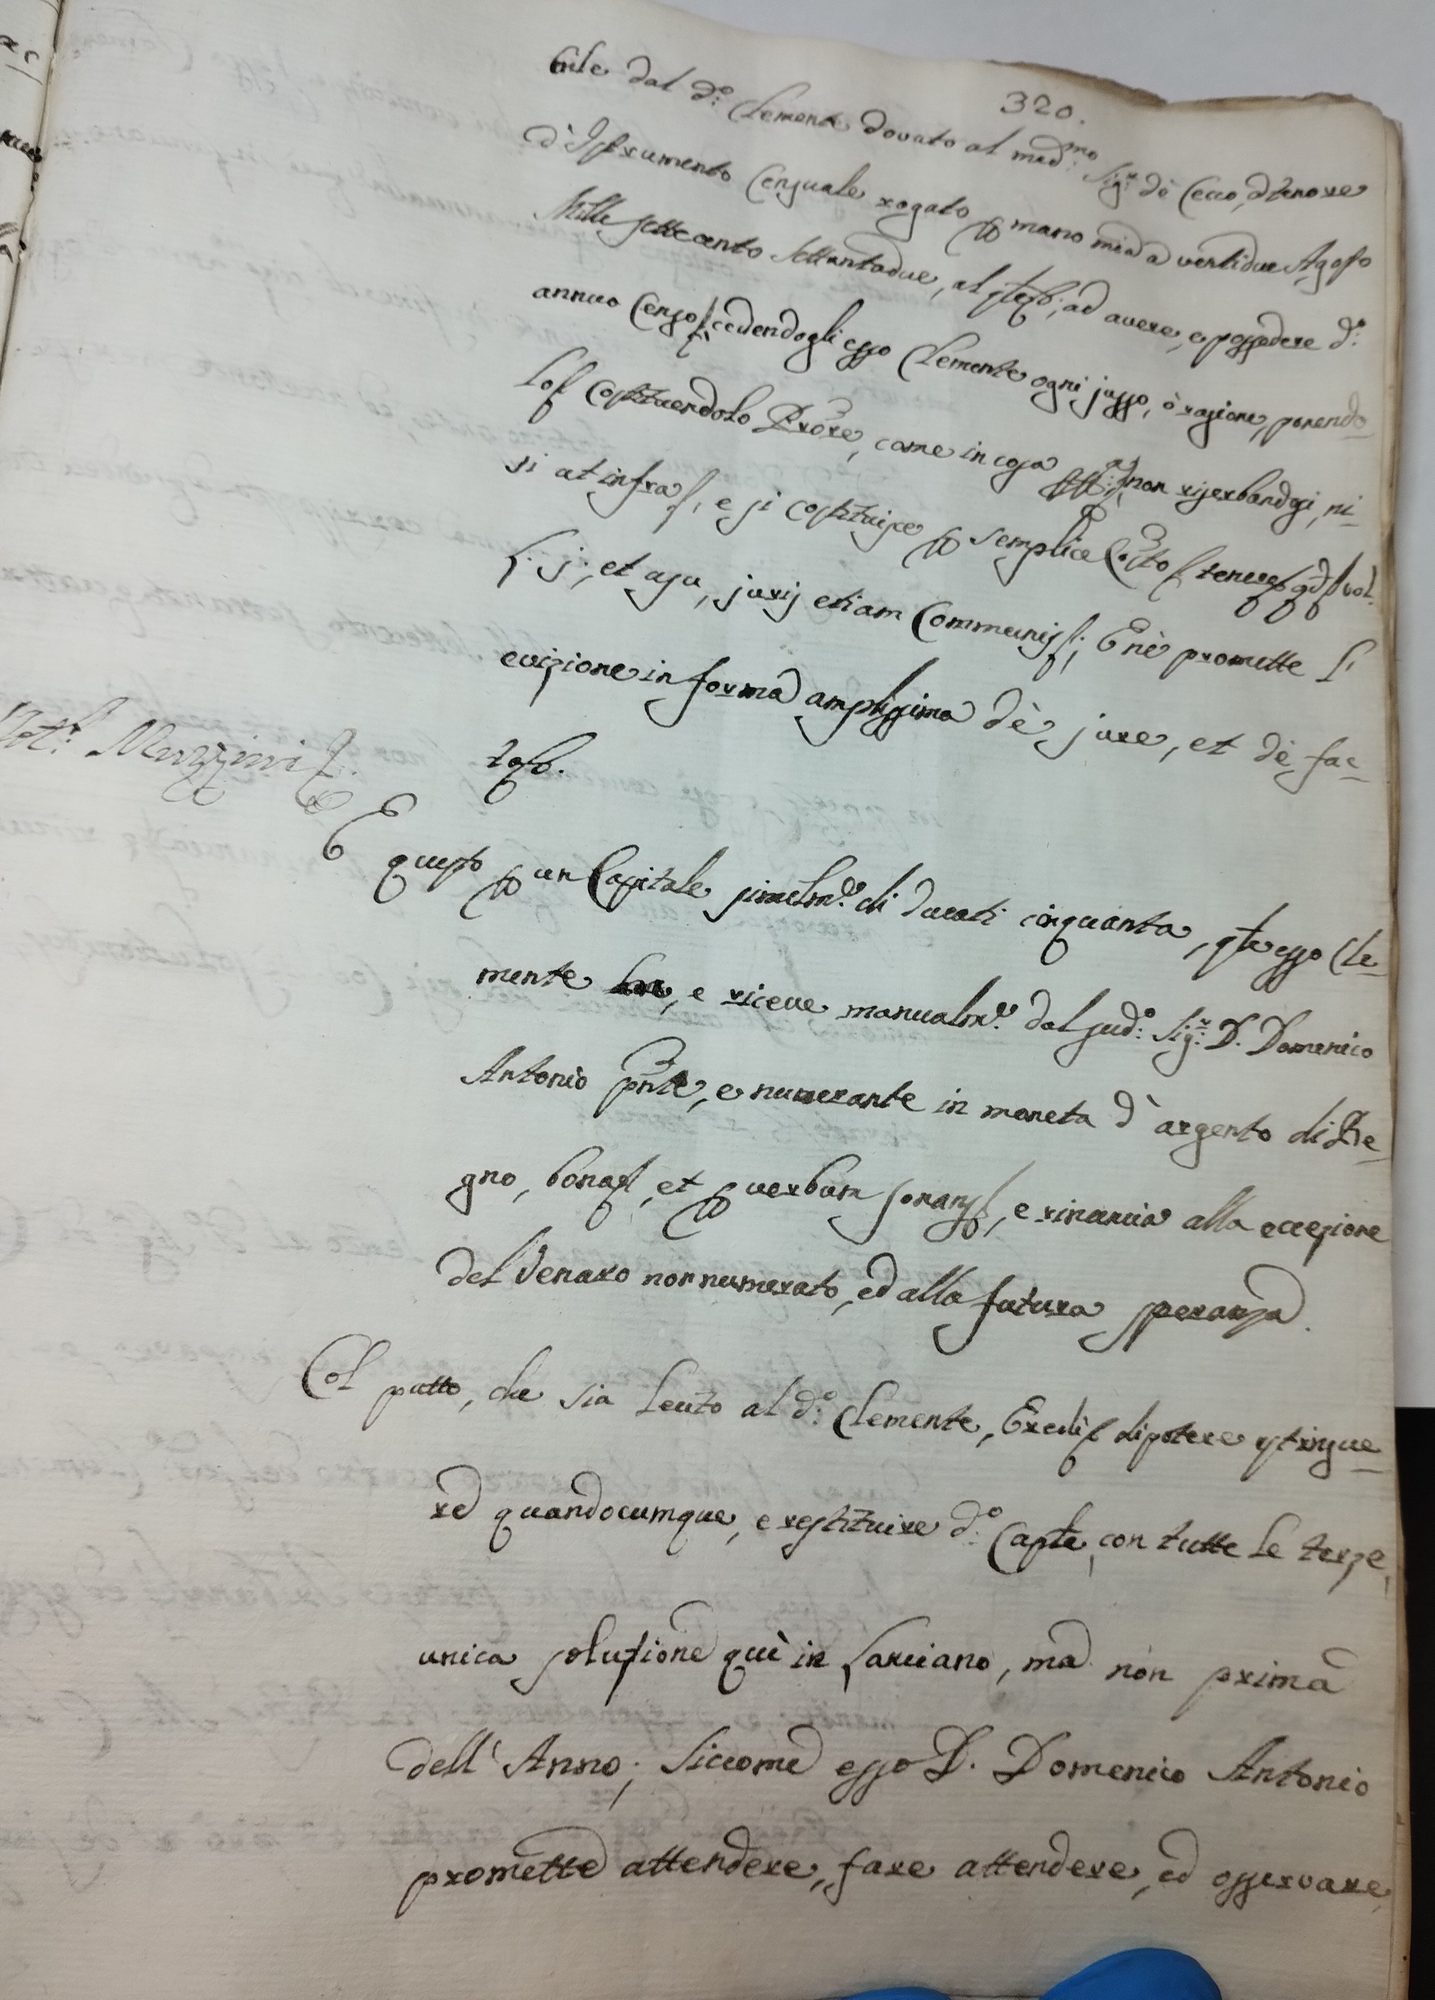 320.
bile dal d:º Clemente dovuto al med:mo Sig:r de Cecco, d'tenore
d'Istrumento Censuale rogato p mano mia a ventidue Agosto
Mille settecento settantadue, ad avere, e possedere d:º
annuo Censo cedendogli esso Clemente ogni jusso, ò ragione, ponendo
costituendolo Prōre, come in cosa non riserbandosi, ni-
si ut infra, e si costituisce p semplice
et asu, juris etiam Communis; E nè promette
evizione in forma amplissima dè jure, et dè fac-
to.
Not:r Mezzini
E questo p un Capitale similm:e di ducati cinquanta, esso Cle-
mente, e riceve manualm:e dal sud:º Sig:r D. Domenico
Antonio pñte, e numerante in moneta d'argento di Re-
gno, bona, et p uerbum sonans, e rinuncia alla eccezione
del denaro non numerato, ed alla futura speranza.
Col patto, che sia lecito al d:º Clemente, Eredi di potere estingue-
re quandocumque, e restituire d:º Caple, con tutte le terze,
unica soluzione quì in Lanciano, ma non prima
dell'Anno; Siccome esso D. Domenico Antonio
promette attendere, fare attendere, ed osservare,